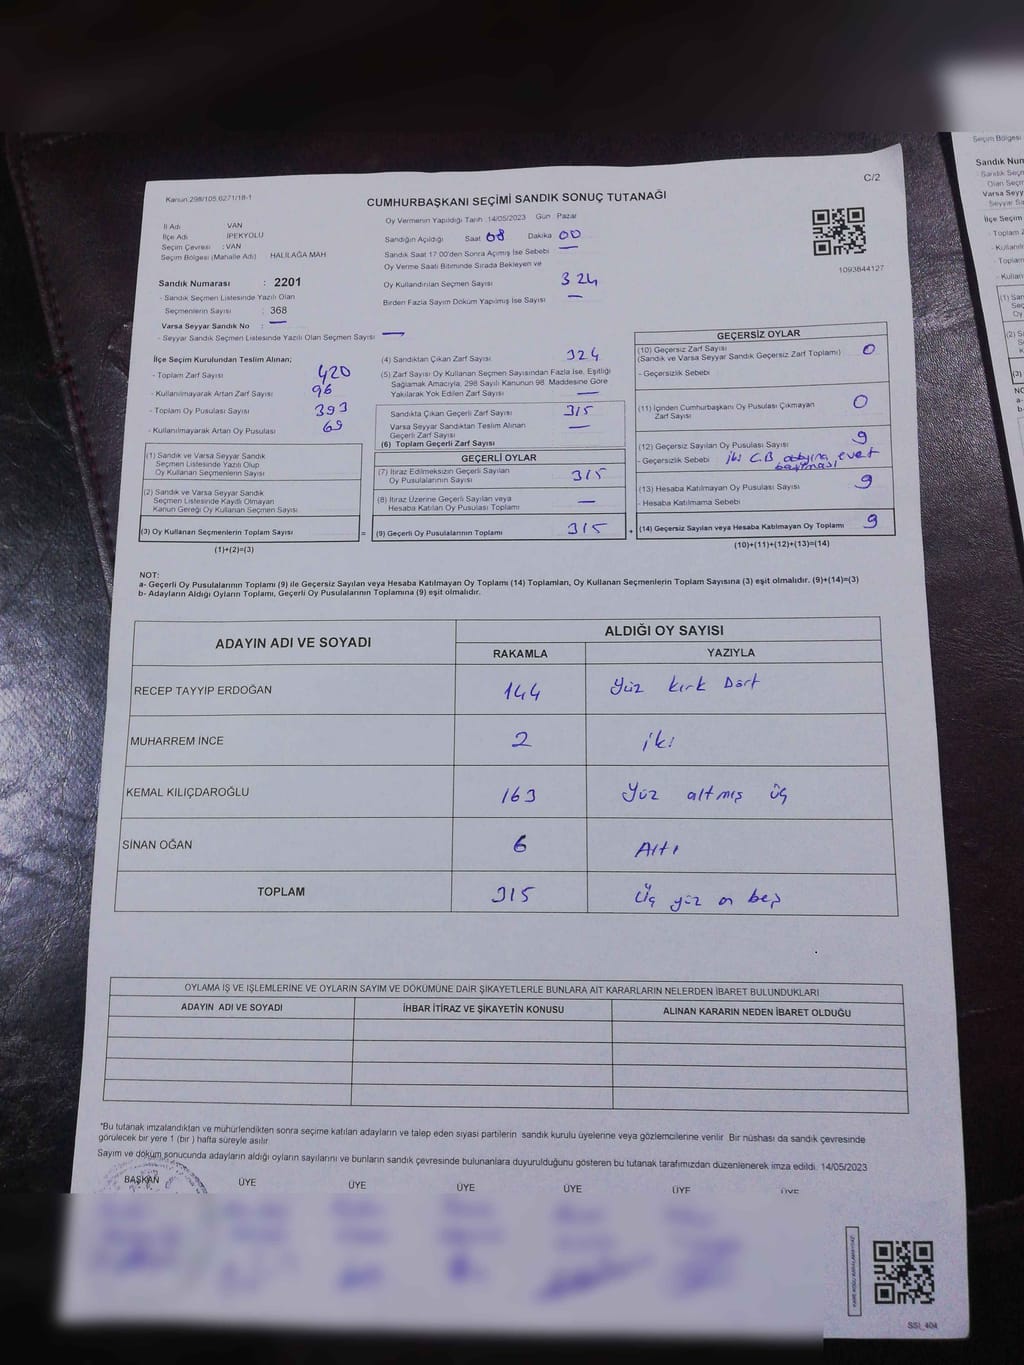 Kanun 298/105,6271/18-1
C/2
CUMHURBAŞKANI SEÇİMİ SANDIK SONUÇ TUTANAĞI
İl Adı VAN
İlçe Adı İPEKYOLU
Seçim Çevresi : VAN
Seçim Bölgesi (Mahalle Adı) HALİLAĞA MAH
Sandık Numarası : 2201
- Sandık Seçmen Listesinde Yazılı Olan
Seçmenlerin Sayısı : 368
Varsa Seyyar Sandık No : —
- Seyyar Sandık Seçmen Listesinde Yazılı Olan Seçmen Sayısı —
Oy Vermenin Yapıldığı Tarih 14/05/2023 Gün Pazar
Sandığın Açıldığı Saat 08 Dakika 00
Sandık Saat 17 00'den Sonra Açımış İse Sebebi —
Oy Verme Saati Bitiminde Sırada Bekleyen ve
Oy Kullandırılan Seçmen Sayısı 324
Birden Fazla Sayım Döküm Yapılmış İse Sayısı —
1093844127
İlçe Seçim Kurulundan Teslim Alınan;
- Toplam Zarf Sayısı 420
- Kullanılmayarak Artan Zarf Sayısı 96
- Toplam Oy Pusulası Sayısı 393
- Kullanılmayarak Artan Oy Pusulası 69
(1) Sandık ve Varsa Seyyar Sandık
Seçmen Listesinde Yazılı Olup
Oy Kullanan Seçmenlerin Sayısı
(2) Sandık ve Varsa Seyyar Sandık
Seçmen Listesinde Kayıtlı Olmayan
Kanun Gereği Oy Kullanan Seçmen Sayısı
(3) Oy Kullanan Seçmenlerin Toplam Sayısı =
(1)+(2)=(3)
(4) Sandıktan Çıkan Zarf Sayısı 324
(5) Zarf Sayısı Oy Kullanan Seçmen Sayısından Fazla İse, Eşitliği
Sağlamak Amacıyla, 298 Sayılı Kanunun 98. Maddesine Göre
Yakılarak Yok Edilen Zarf Sayısı —
Sandıkta Çıkan Geçerli Zarf Sayısı 315
Varsa Seyyar Sandıktan Teslim Alınan
Geçerli Zarf Sayısı —
(6) Toplam Geçerli Zarf Sayısı
GEÇERLİ OYLAR
(7) İtiraz Edilmeksizin Geçerli Sayılan
Oy Pusulalarının Sayısı 315
(8) İtiraz Üzerine Geçerli Sayılan veya
Hesaba Katılan Oy Pusulası Toplamı —
(9) Geçerli Oy Pusulalarının Toplamı 315 +
GEÇERSİZ OYLAR
(10) Geçersiz Zarf Sayısı
(Sandık ve Varsa Seyyar Sandık Geçersiz Zarf Toplamı) 0
- Geçersizlik Sebebi
(11) İçinden Cumhurbaşkanı Oy Pusulası Çıkmayan
Zarf Sayısı 0
(12) Geçersiz Sayılan Oy Pusulası Sayısı 9
- Geçersizlik Sebebi iki C.B adayına evet
basılması
(13) Hesaba Katılmayan Oy Pusulası Sayısı 9
- Hesaba Katılmama Sebebi
(14) Geçersiz Sayılan veya Hesaba Katılmayan Oy Toplamı 9
(10)+(11)+(12)+(13)=(14)
NOT:
a- Geçerli Oy Pusulalarının Toplamı (9) ile Geçersiz Sayılan veya Hesaba Katılmayan Oy Toplamı (14) Toplamları, Oy Kullanan Seçmenlerin Toplam Sayısına (3) eşit olmalıdır. (9)+(14)=(3)
b- Adayların Aldığı Oyların Toplamı, Geçerli Oy Pusulalarının Toplamına (9) eşit olmalıdır.
ADAYIN ADI VE SOYADI
ALDIĞI OY SAYISI
RAKAMLA YAZIYLA
RECEP TAYYİP ERDOĞAN 144 Yüz kırk Dört
MUHARREM İNCE 2 iki
KEMAL KILIÇDAROĞLU 163 Yüz altmış üç
SİNAN OĞAN 6 Altı
TOPLAM 315 Üç yüz on beş
OYLAMA İŞ VE İŞLEMLERİNE VE OYLARIN SAYIM VE DÖKÜMÜNE DAİR ŞİKAYETLERLE BUNLARA AİT KARARLARIN NELERDEN İBARET BULUNDUKLARI
ADAYIN ADI VE SOYADI İHBAR İTİRAZ VE ŞİKAYETİN KONUSU ALINAN KARARIN NEDEN İBARET OLDUĞU
*Bu tutanak imzalandıktan ve mühürlendikten sonra seçime katılan adayların ve talep eden siyasi partilerin sandık kurulu üyelerine veya gözlemcilerine verilir Bir nüshası da sandık çevresinde
görülecek bir yere 1 (bir) hafta süreyle asılır
Sayım ve döküm sonucunda adayların aldığı oyların sayılarını ve bunların sandık çevresinde bulunanlara duyurulduğunu gösteren bu tutanak tarafımızdan düzenlenerek imza edildi. 14/05/2023
BAŞKAN ÜYE ÜYE ÜYE ÜYE ÜYE ÜYE
SSI_404
Seçim Bölgesi
Sandık Num
Varsa Seyy
İlçe Seçim
- Toplam Z
- Kullanılm
- Toplam
- Kullanıl